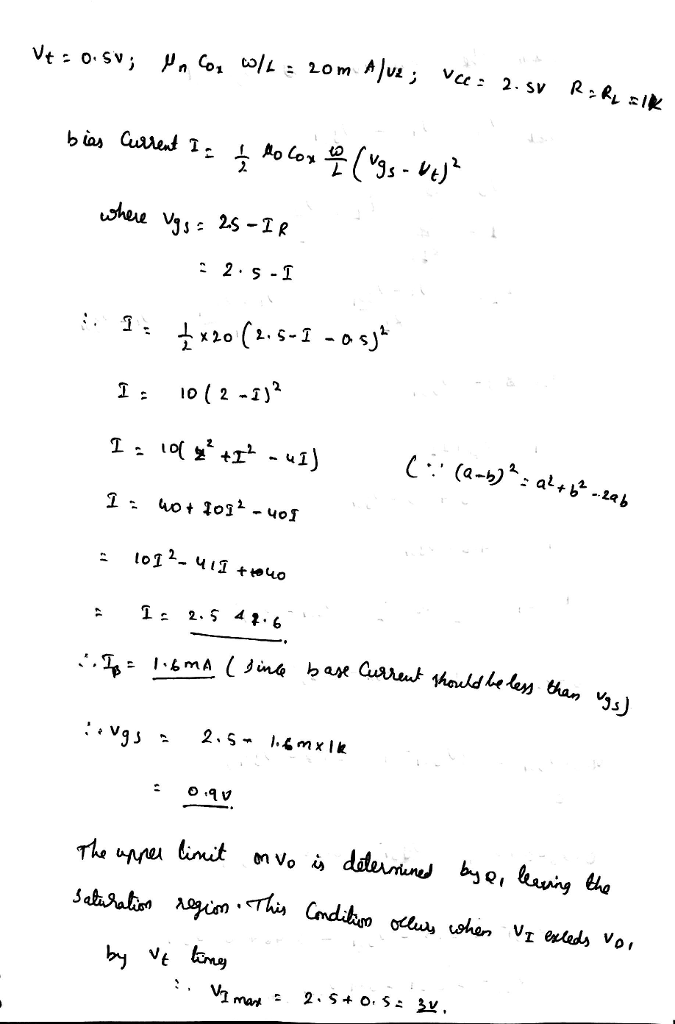 Vt = 0.5V; μn Cox ω/L = 20m A/V2; Vcc = 2.5V R = RL = 1K
bias Current I = 1/2 μo Cox ω/L (Vgs - Vt)²
where Vgs = 25 - IR
= 2.5 - I
∴ I = 1/2 x 20 (2.5 - I - 0.5)²
I = 10 (2 - I)²
I = 10( 2² + I² - 4I) (∵ (a-b)² = a² + b² - 2ab
I = 40 + 10I² - 40I
= 10I² - 41I + 40
= I = 2.5 & 1.6
∴ IB = 1.6mA (Since base Current should be less than Vgs)
∴ Vgs = 2.5 - 1.6m x 1K
= 0.9V
The upper limit on Vo is determined by Q1 leaving the
Saturation region. This Condition occurs when VI exceeds VO1
by Vt times
∴ VI max = 2.5 + 0.5 = 3V.